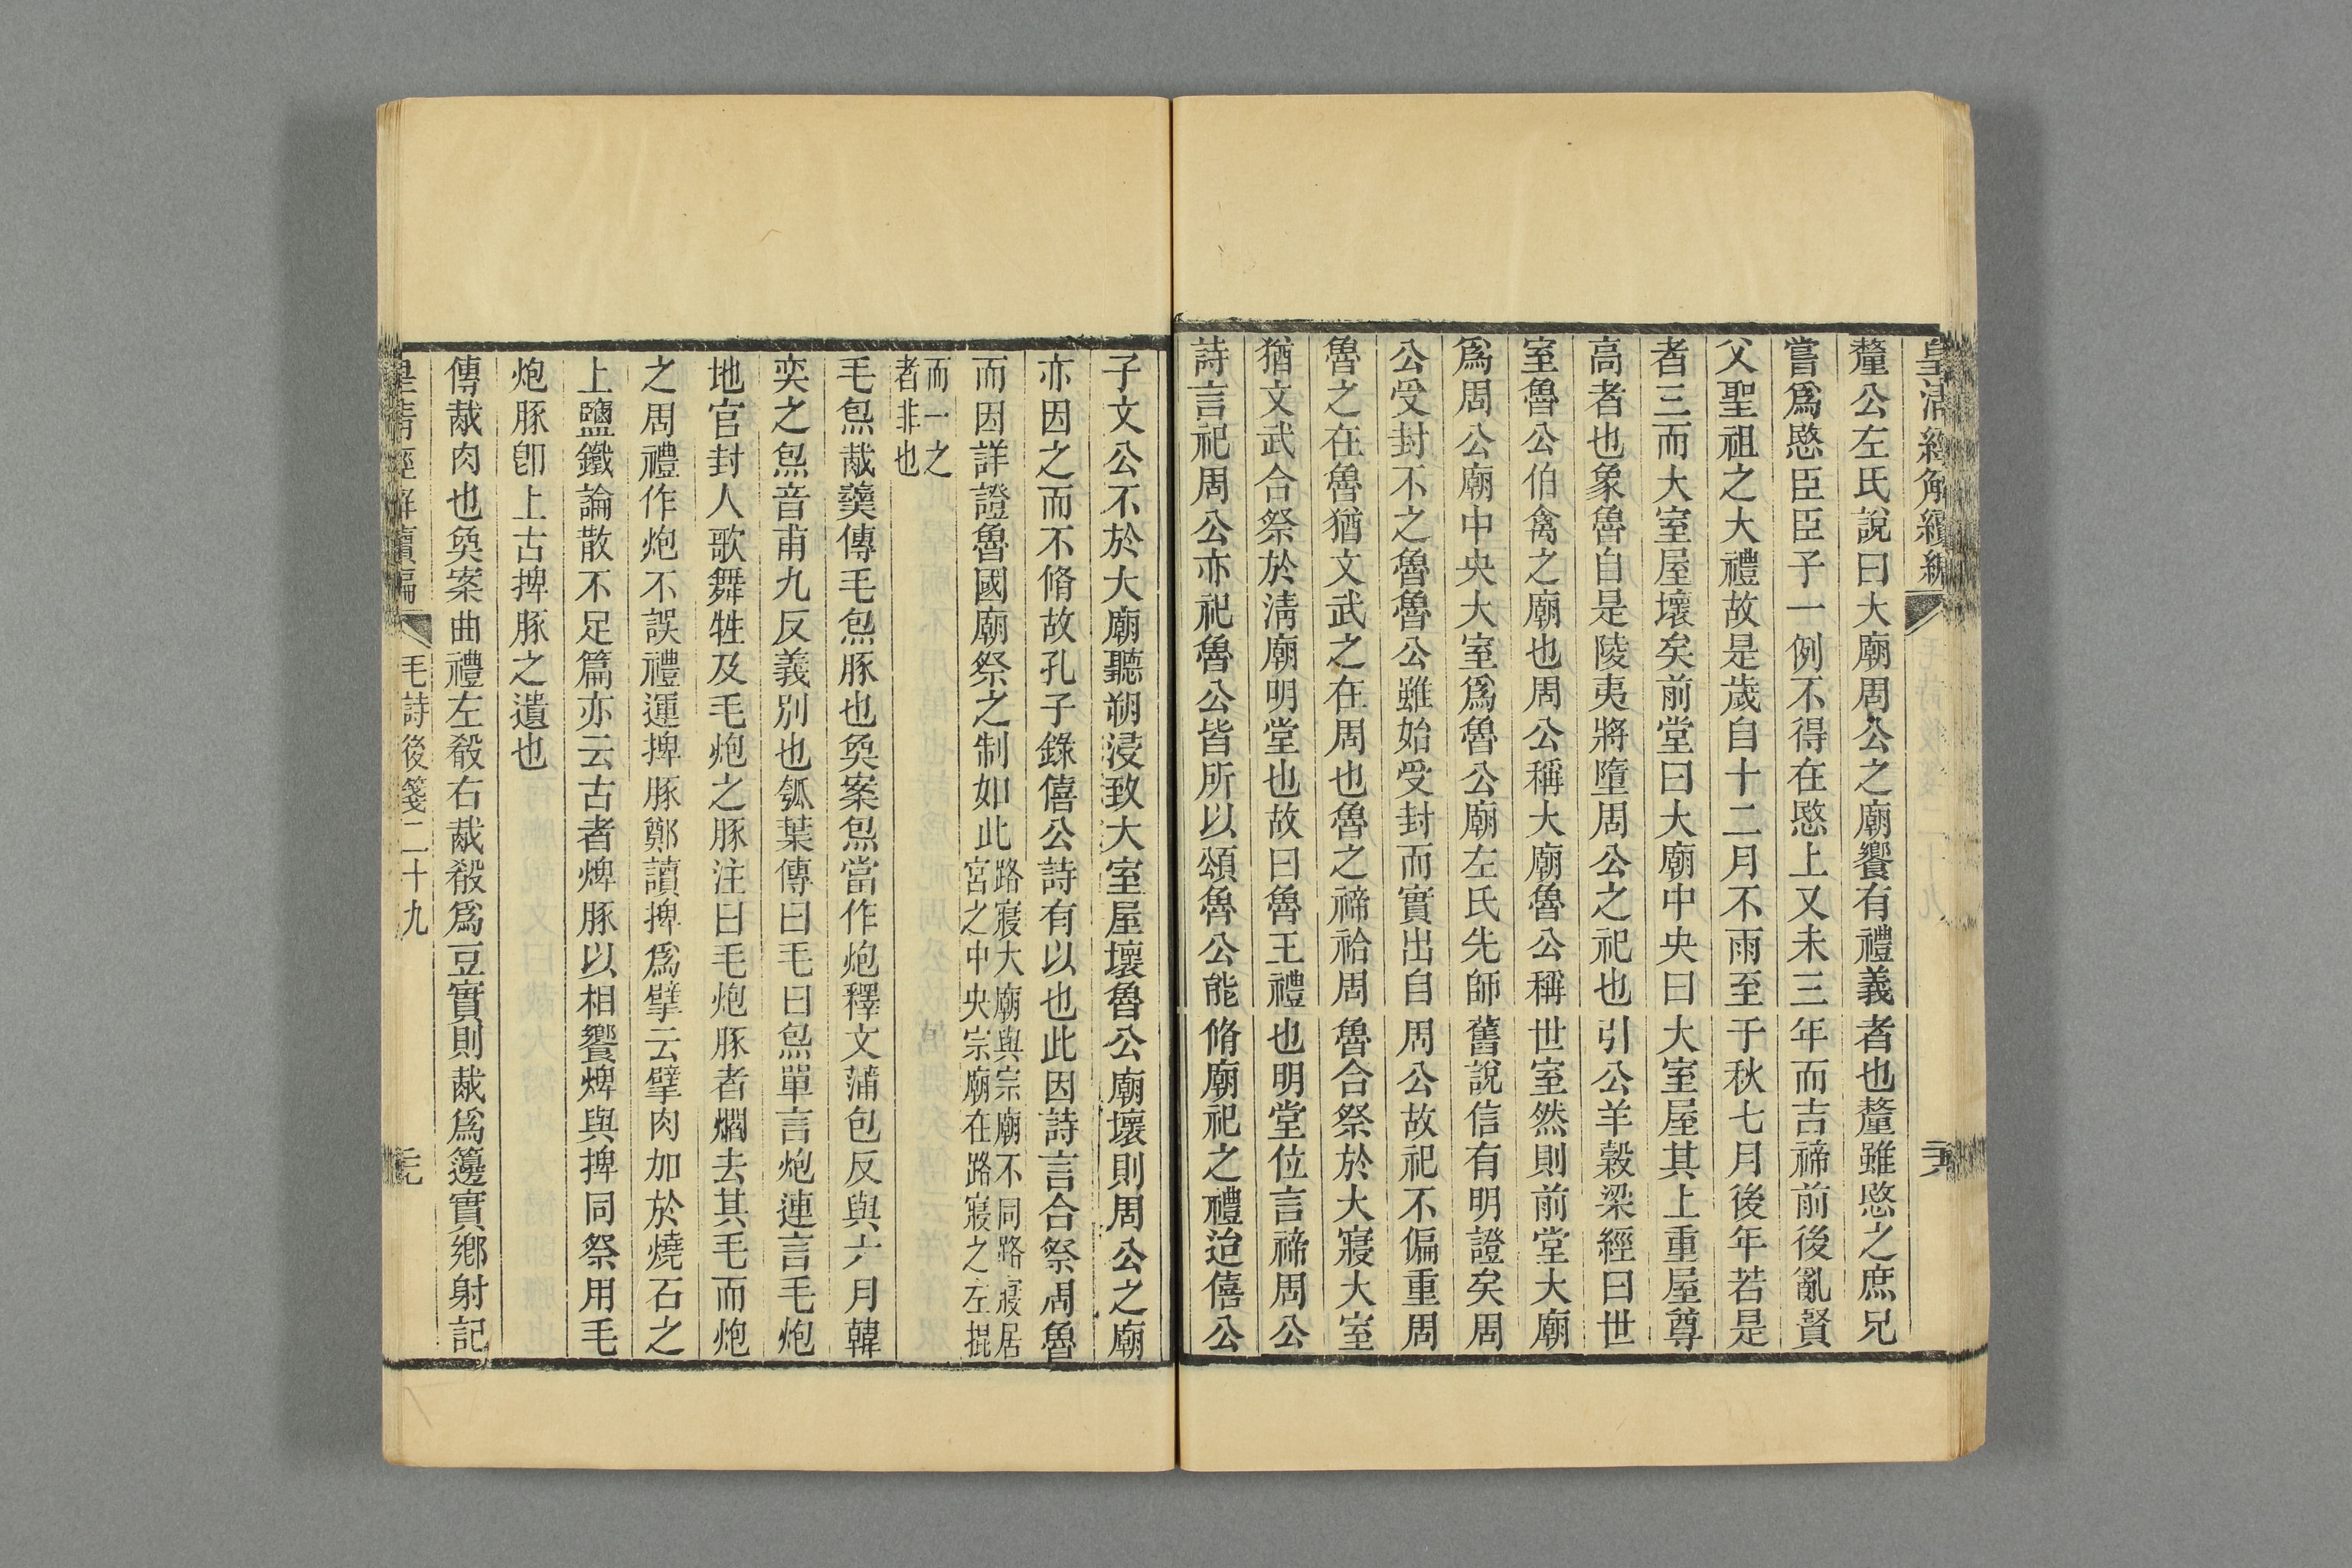 皇清經解續編
釐公左氏說曰大廟周公之廟饗有禮義者也釐雖愍之庶兄
嘗爲愍臣臣子一例不得在愍上又未三年而吉禘前後亂賢
父聖祖之大禮故是歲自十二月不雨至于秋七月後年若是
者三而大室屋壞矣前堂曰大廟中央曰大室屋其上重屋尊
高者也象魯自是陵夷將墮周公之祀也引公羊穀梁經曰世
室魯公伯禽之廟也周公稱大廟魯公稱世室然則前堂大廟
爲周公廟中央大室爲魯公廟左氏先師舊說信有明證矣周
公受封不之魯魯公雖始受封而實出自周公故祀不偏重周
魯之在魯猶文武之在周也魯之禘祫周魯合祭於大寢大室
猶文武合祭於淸廟明堂也故曰魯王禮也明堂位言禘周公
詩言祀周公亦祀魯公皆所以頌魯公能脩廟祀之禮迨僖公
子文公不於大廟聽朔浸致大室屋壞魯公廟壞則周公之廟
亦因之而不脩故孔子錄僖公詩有以也此因詩言合祭周魯
而因詳證魯國廟祭之制如此路寢大廟與宗廟不同路寢居
宮之中央宗廟在路寢之左掍
而一之
者非也
毛炰胾羹傳毛炰豚也奐案炰當作炮釋文蒲包反與六月韓
奕之炰音甫九反義別也瓠葉傳曰毛曰炰單言炮連言毛炮
地官封人歌舞牲及毛炮之豚注曰毛炮豚者爓去其毛而炮
之周禮作炮不誤禮運捭豚鄭讀捭爲擘云擘肉加於燒石之
上鹽鐵論散不足篇亦云古者焷豚以相饗焷與捭同祭用毛
炮豚卽上古捭豚之遺也
傳胾肉也奐案曲禮左殽右胾殽爲豆實則胾爲籩實鄉射記
皇清經解續編
毛詩後箋二十九